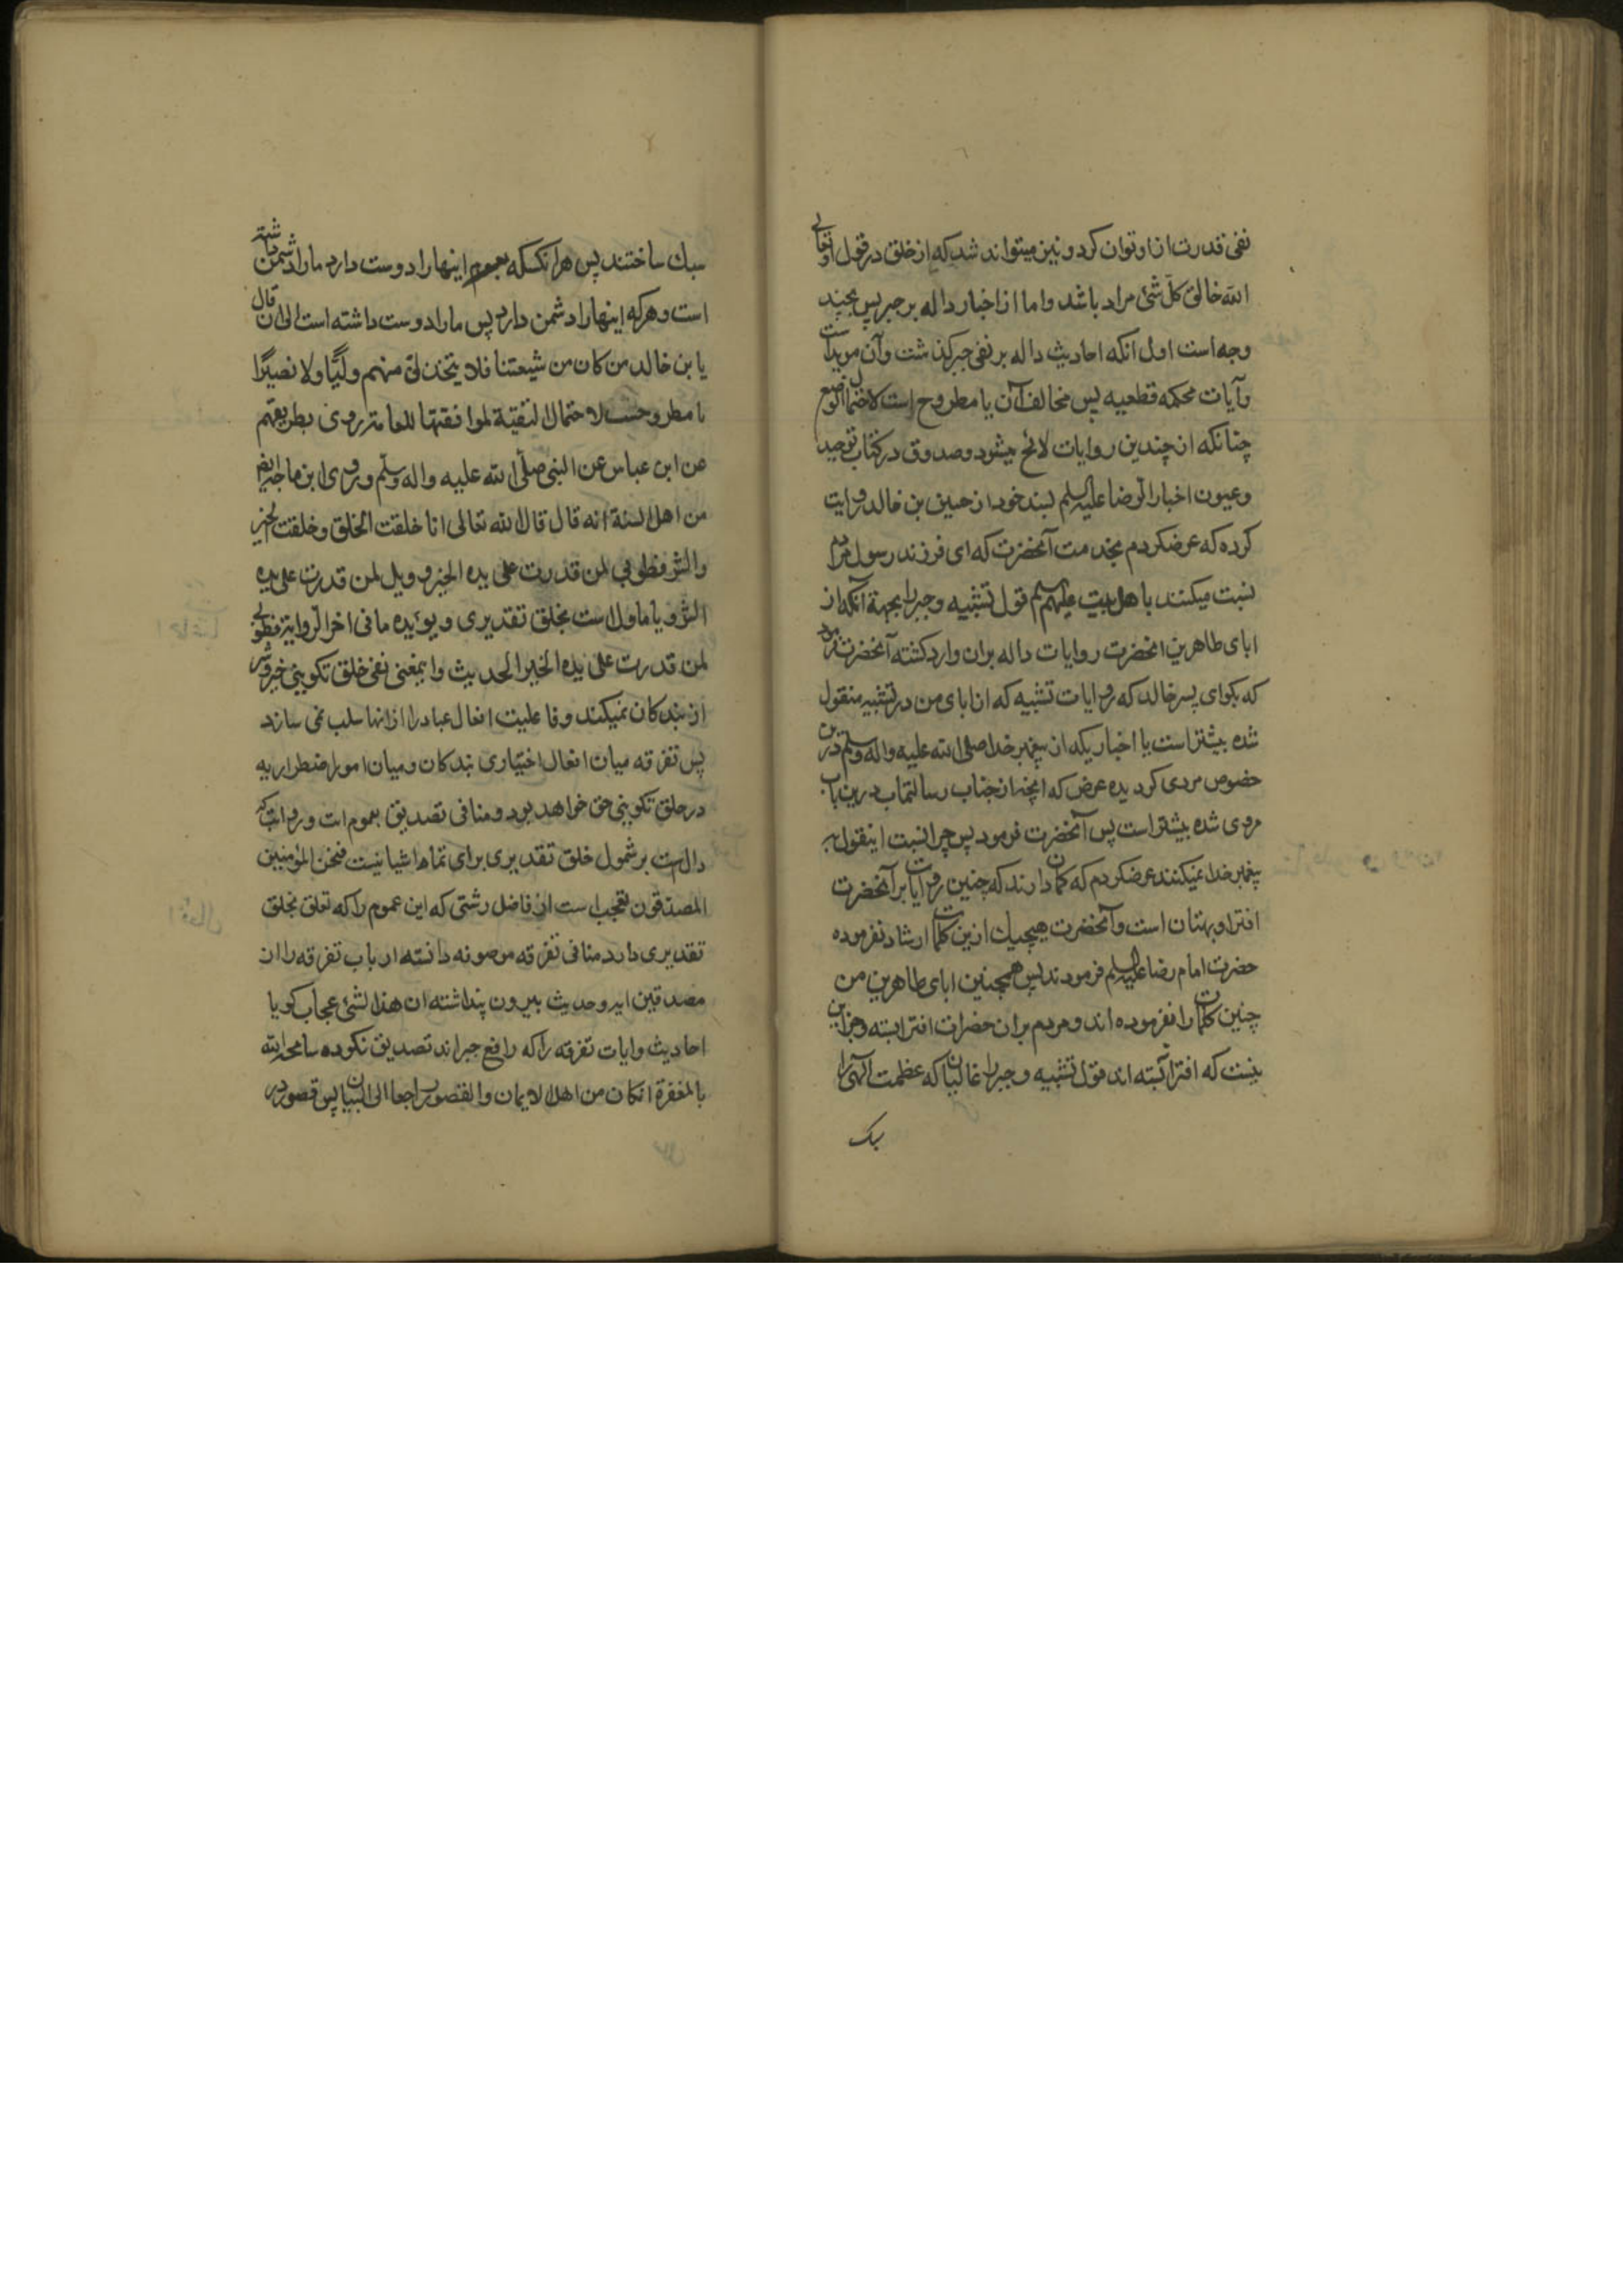 نفی قدرت از او توان کرد و نیز میتواند شد که از خلق در قول او تعالی
الله خالق کل شئ مراد باشد و اما از اخبار داله بر جبر پس بچند
وجه است اول انکه احادیث داله بر نفی جبر کذشت و آن مویداست
وآیات محکمه قطعیه پس مخالف آن یا مطروح است لاحتمال الوضع
چنانکه از چندین روایات لائح میشود و صدوق در کتاب توحید
و عیون اخبار الرضا علیه السلم بسند خود از حسین بن خالد روایت
کرده که عرضکردم بخدمت آنحضرت که ای فرزند رسول مردم
نسبت میکنند باهل بیت علیهم السلم قول تشبیه و جبر را بجهة آنکه از
ابای طاهرین انحضرت روایات داله بران وارد کشته آنحضرت فرمود
که بکو ای پسر خالد که روایات تشبیه که از ابای من در تشبیه منقول
شده بیشتر است یا اخباریکه از پیغمبر خدا صلی الله علیه واله وسلم درین
خصوص مروی کردیده عرض که انچه از جناب رسالتماب درین باب
مروی شده بیشتر است پس آنحضرت فرمود پس چرا نسبت اینقول به
پیغمبر خدا نمیکنند عرضکردم که کمان دارند که چنین روایات بر آنحضرت
افترا و بهتان است وآنحضرت هیچیك ازین کلمات ارشاد نفرموده
حضرت امام رضا علیه السلم فرمودند پس همچنین ابای طاهرین من
چنین کلمات را نفرموده اند و مردم بران حضرات افترا بسته و جز این
نیست که افترا بسته اند قول تشبیه و جبر را غالیان که عظمت الهی را
سبک
سبك ساختند پس هر آنکسکه اینها را دوست دارد ما را دشمن داشته
است و هرکه اینها را دشمن دارد پس ما را دوست داشته است الی ان قال
یا بن خالد من کان من شیعتنا فلا یتخذن منهم ولیا ولا نصیرا
یا مطروحست لاحتمال التقیة لموافقتها للعامة روی بطریقهم
عن ابن عباس عن النبی صلی الله علیه واله وسلم وروی ابن ماجه ایضا
من اهل السنة انه قال قال الله تعالی انا خلقت الخلق وخلقت الخیر
والشر فطوبی لمن قدرت علی یده الخیر وویل لمن قدرت علی یده
الشر و یا ماول است بخلق تقدیری و یؤیده ما فی اخر الروایة فطوبی
لمن قدرت علی یده الخیر الحدیث و اینمعنی نفی خلق تکوینی خیر و شر
از بندکان نمیکند و فاعلیت افعال عباد را از انها سلب نمی سازد
پس تفرقه میان افعال اختیاری بندکان و میان امور اضطراریه
در خلق تکوینی حق خواهد بود و منافی تصدیق بعموم ات و روایت که
دال است بر شمول خلق تقدیری برای تمام اشیا نیست فنحن المؤمنین
المصدقون تعجب است از فاضل رشتی که این عموم را که تعلق بخلق
تقدیری دارد منافی تفرقه مرصونه دانسته ارباب تفرقه را از
مصدقین ایه و حدیث بیرون پنداشته ان هذا لشئ عجاب کویا
احادیث و ایات تفرقه را که رافع جبراند تصدیق نکرده سامحه الله
بالمغفرة انکان من اهل الایمان والقصور راجعا الی البیان پس قصور در